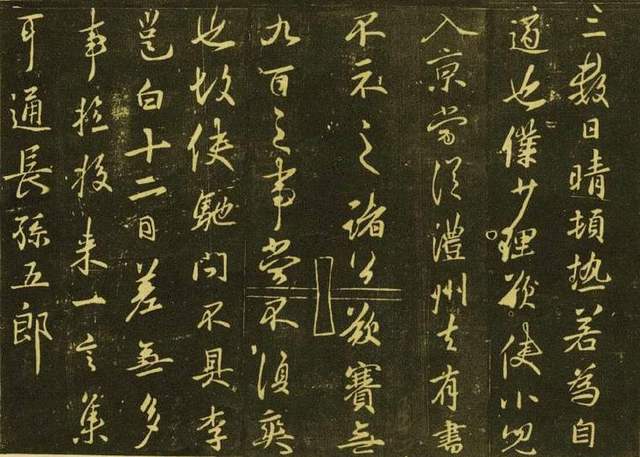 三數日晴頓熱若為自
適也僕少理欲使小兒
入京當從澧州去有書
不示之諸公欲賽無
九百之事當不須爽
也故使馳問不具李
邕白十二日羌無多
事投來一言集
耳通長孫五郎